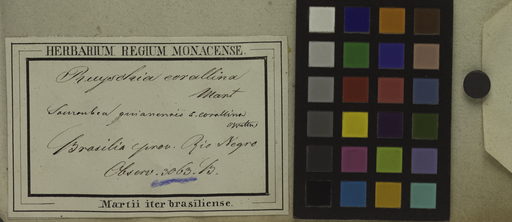 HERBARIUM REGIUM MONACENSE.
Ruyschia corallina
Mart
Souroubea guianensis s. corallina
Brasilia prov. Rio Negro
Observ. 3063. B.
Martii iter brasiliense.